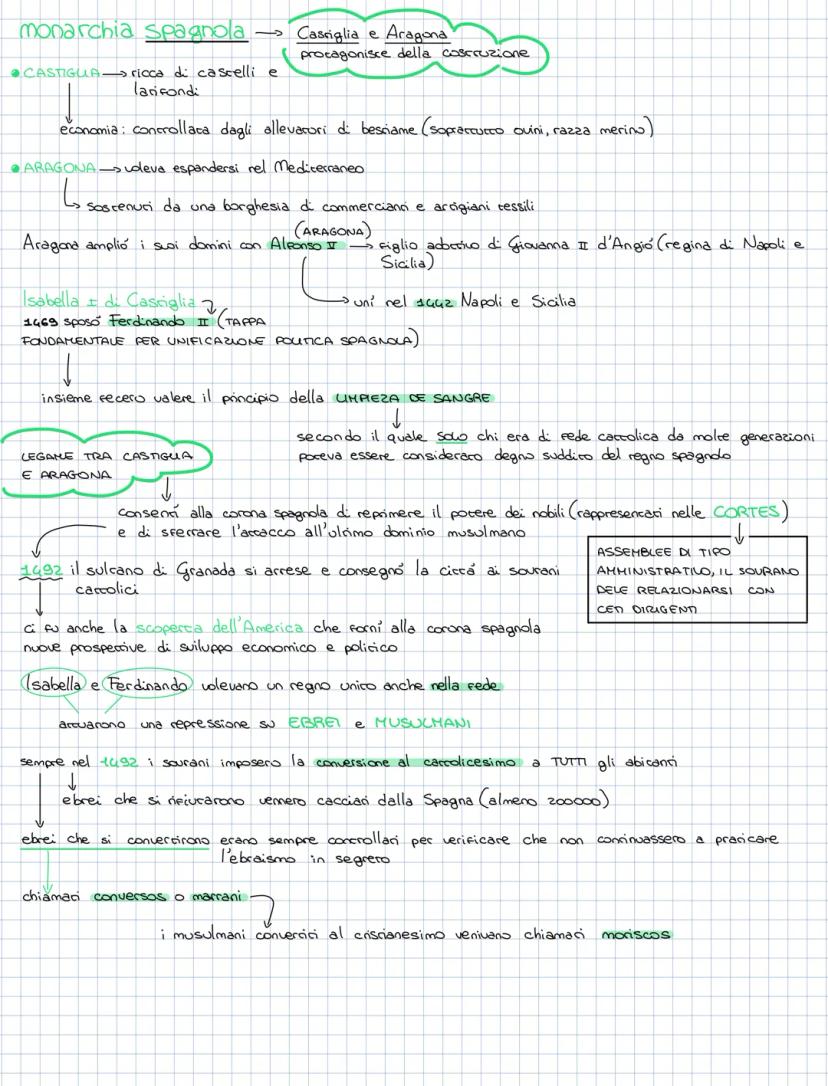 monarchia spagnola → Castiglia e Aragona
protagoniste della costruzione
• CASTIGLIA → ricca di castelli e
latifondi
economia: controllata dagli allevatori di bestiame (soprattutto ovini, razza merino)
• ARAGONA → voleva espandersi nel Mediterraneo
sostenuti da una borghesia di commercianti e artigiani tessili
(ARAGONA)
Aragona ampliò i suoi domini con Alfonso V → figlio adottivo di Giovanna II d'Angió (regina di Napoli e
Sicilia)
→ unì nel 1442 Napoli e Sicilia
Isabella I di Castiglia
1469 sposó Ferdinando II (TAPPA
FONDAMENTALE PER UNIFICAZIONE POLITICA SPAGNOLA)
insieme fecero valere il principio della LIMPIEZA DE SANGRE
secondo il quale solo chi era di fede cattolica da molte generazioni
poteva essere considerato degno suddito del regno spagnolo
LEGAME TRA CASTIGLIA
E ARAGONA
consentì alla corona spagnola di reprimere il potere dei nobili (rappresentati nelle CORTES)
e di sferrare l'attacco all'ultimo dominio musulmano
ASSEMBLEE DI TIPO
AMMINISTRATIVO, IL SOVRANO
DEVE RELAZIONARSI CON
CETI DIRIGENTI
1492 il sultano di Granada si arrese e consegnó la cittá ai sovrani
cattolici
ci fu anche la scoperta dell'America che forní alla corona spagnola
nuove prospettive di sviluppo economico e politico
Isabella e Ferdinando volevano un regno unito anche nella fede
attuarono una repressione su EBREI e MUSULMANI
sempre nel 1492 i sovrani imposero la conversione al cattolicesimo a TUTTI gli abitanti
ebrei che si rifiutarono vennero cacciati dalla Spagna (almeno 200000)
ebrei che si convertirono erano sempre controllati per verificare che non continuassero a praticare
l'ebraismo in segreto
chiamati conversos o marrani
i musulmani convertiti al cristianesimo venivano chiamati moriscos